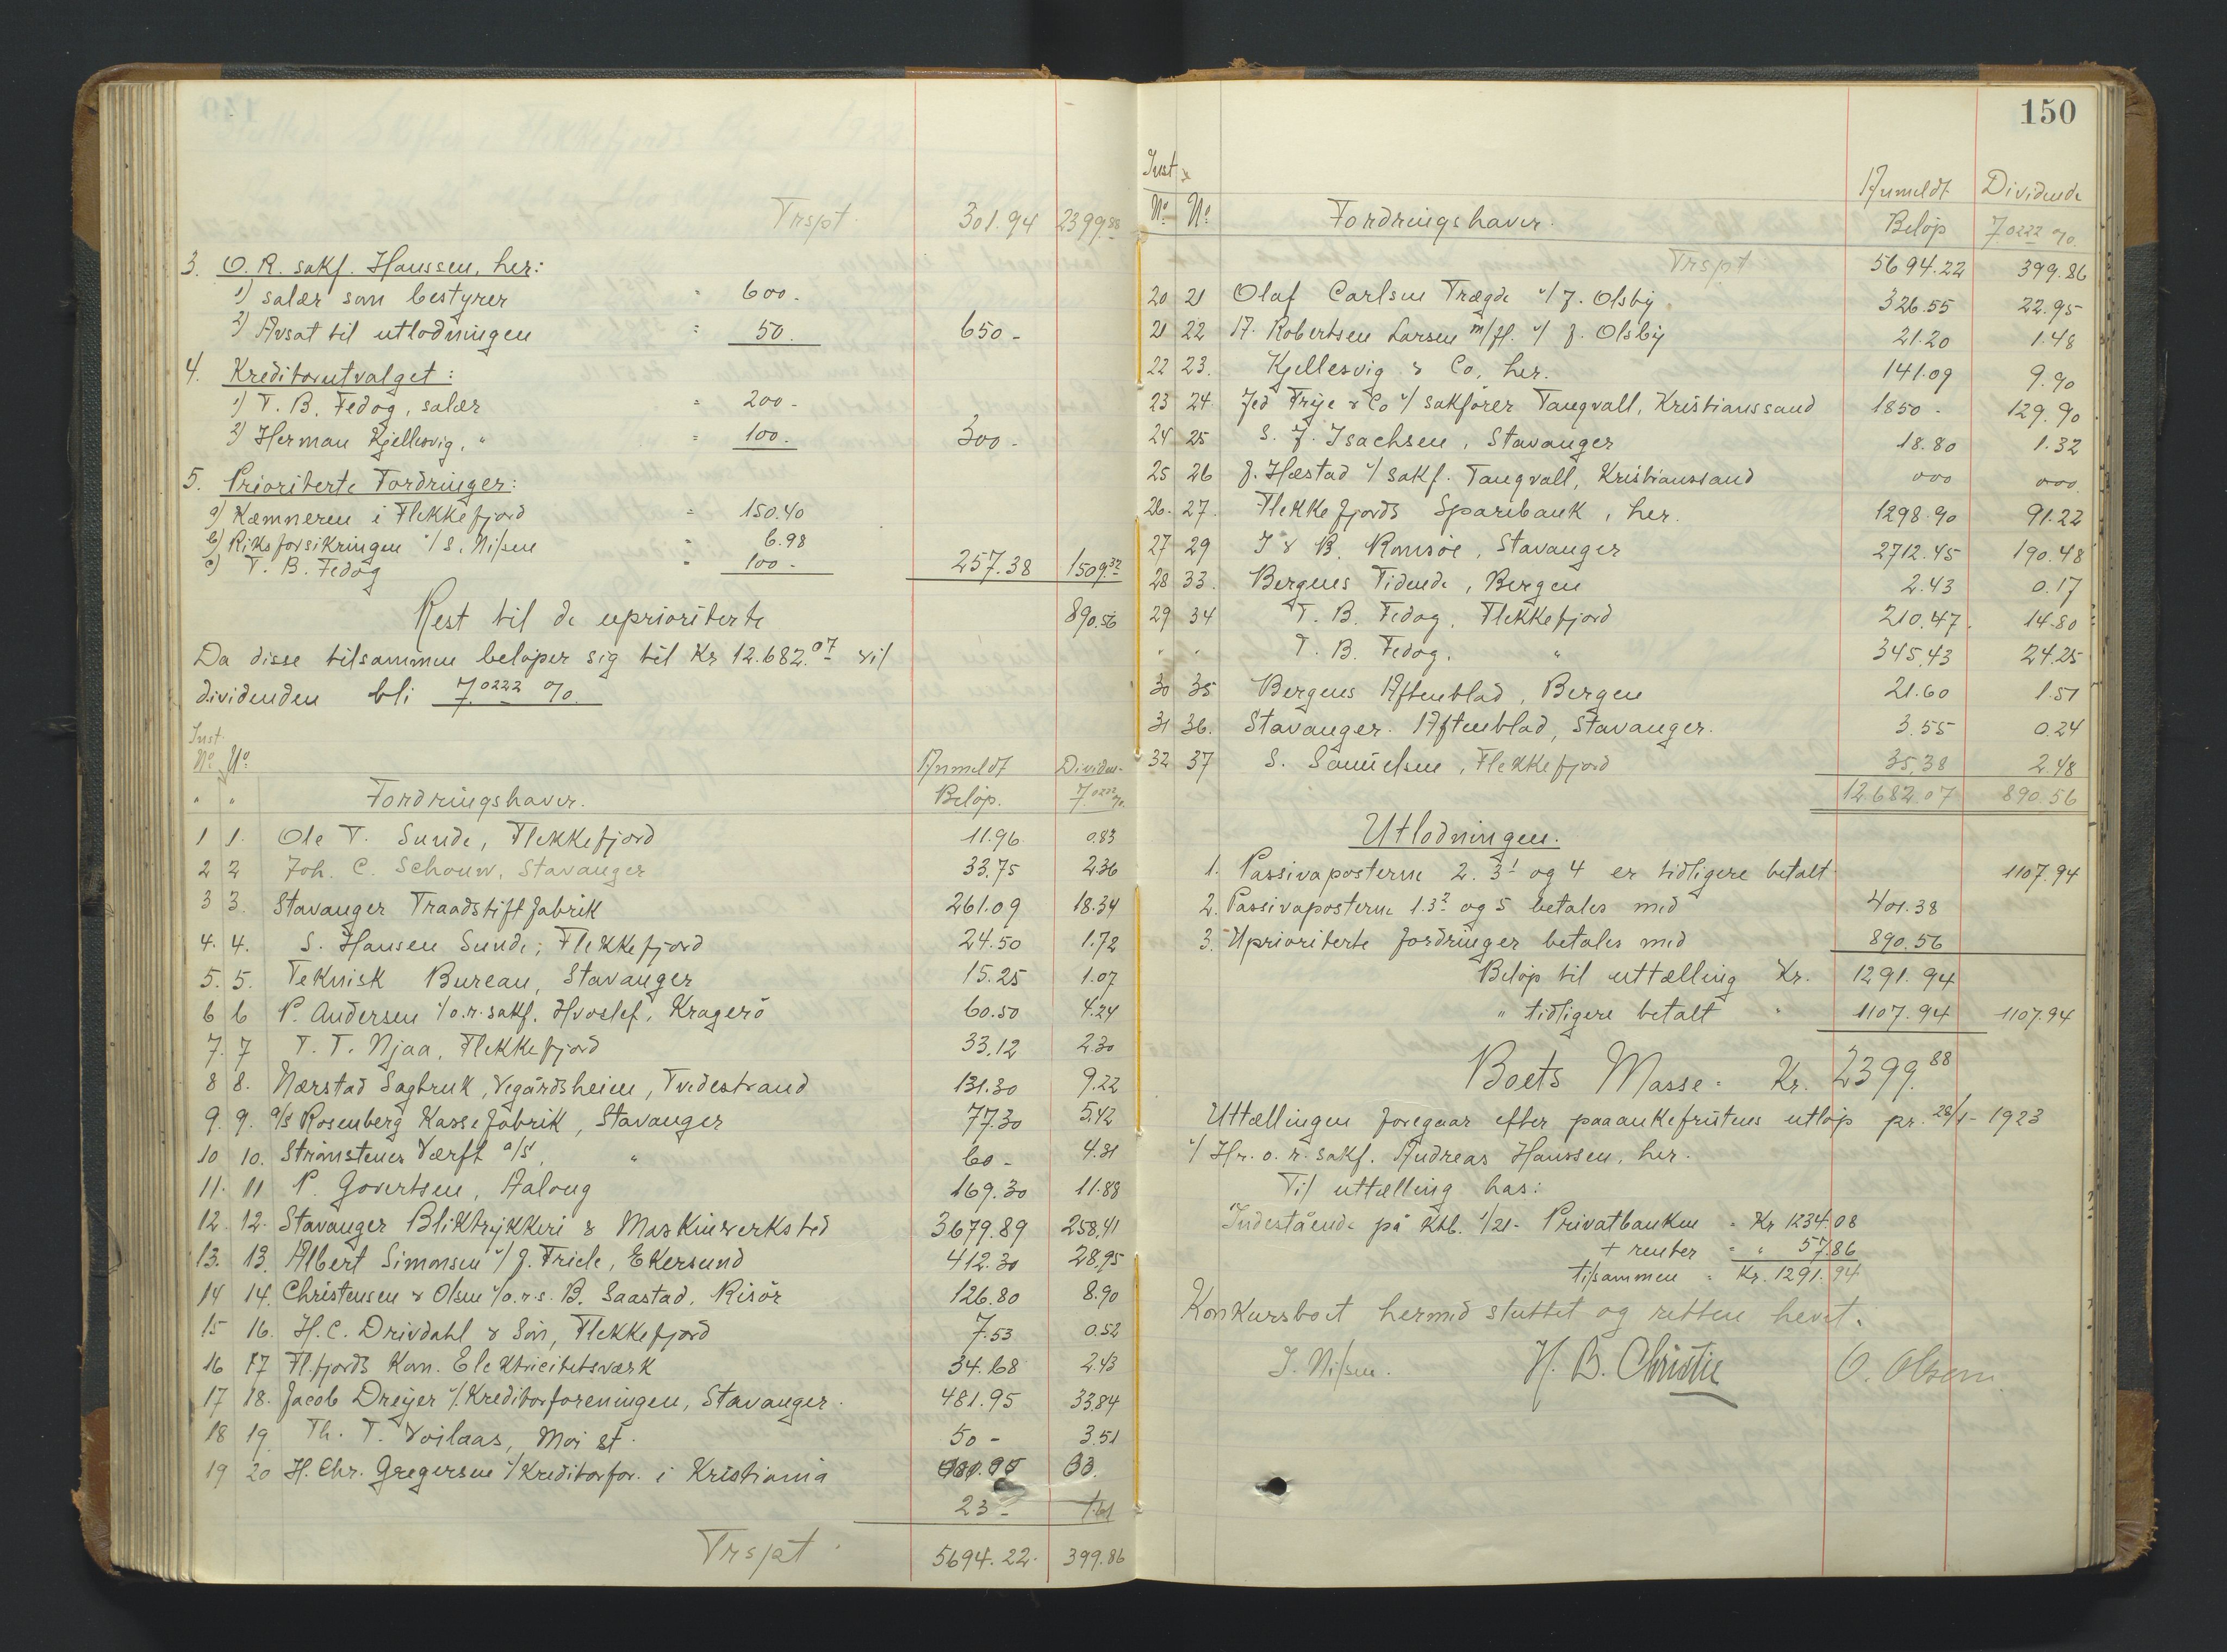 Trspt. 301.94 2399.88
3. O. R. sakf. Hanssen, her:
1) salær som bestyrer = 600.-
2) Avsat til utlodningen = 50. 650-
4. Kreditorutvalget:
1) T. B. Fedog, salær = 200-
2) Herman Kjellesvig, " = 100.- 300-
5. Prioriterte Fordringer:
a) Kæmneren i Flekkefjord = 150.40
b) Riksforsikringen v/ S. Nilsen = 6.98
c) T. B. Fedog = 100- 257.38 1509.32
Rest til de uprioriterte 890.56
Da disse tilsammen beløper sig til Kr 12.682.07 vil
dividenden bli 7.0222 %
Inst.
No No Anmeldt Dividen-
" " Fordringshaver. Beløp. 7.0222 %
1 1. Ole T. Sunde, Flekkefjord 11.96 0.83
2 2 Joh. C. Schouw, Stavanger 33.75 2.36
3 3. Stavanger Traadstiftfabrik 261.09 18.34
4. 4. S. Hansen Sunde, Flekkefjord 24.50 1.72
5. 5. Teknisk Bureau, Stavanger 15.25 1.07
6 6 P. Andersen v/o.r.sakf. Hvoslef, Kragerö 60.50 4.24
7. 7 T. T. Njaa, Flekkefjord 33.12 2.30
8 8. Nærstad Sagbruk, Vegårdsheien, Tvedestrand 131.30 9.22
9. 9. a/s Rosenberg Kassefabrik, Stavanger 77.30 5.42
10 10. Strömstenes Værft a/s, " 60- 4.21
11. 11 P. Govertsen, Aalong 169.30 11.88
12. 12. Stavanger Bliktrykkeri & Maskinverksted 3679.89 258.41
13. 13. Albert Simonsen v/ J. Friele, Ekersund 412.30 28.95
14 14. Christensen & Olsen v/o.r.s. B. Saastad, Risör 126.80 8.90
15 16. H. C. Drivdahl & Sön, Flekkefjord 7.53 0.52
16 17 Fl.fjords Kom. Elektricitetsværk 34.68 2.43
17 18. Jacob Dreyer v/Kreditorforeningen, Stavanger. 481.95 33.84
18 19. Th. T. Voilaas, Moi st. 50- 3.51
19 20 H. Chr. Gregersen v/Kreditorfor. i Kristiania
23- 1.61
Trspt. 5694.22. 399.86
150
Inst.
No No Fordringshaver. Anmeldt Beløp Dividende 7.0222 %
Trspt 5694.22 399.86
20 21 Olaf Carlsen Trægde v/ J. Olsby 326.55 22.95
21 22 A. Robertsen Larsen m/fl. v/ J. Olsby 21.20 1.48
22 23. Kjellesvig & Co, her. 141.09 9.90
23 24. Jed Frye & Co v/ sakförer Tangvall, Kristianssand 1850- 129.90
24 25 S. J. Isachsen, Stavanger 18.80 1.32
25 26 J. Hæstad v/ sakf. Tangvall, Kristianssand 000 000
26. 27. Flekkefjords Sparebank, her. 1298.90 91.22
27 29 I & B. Romsöe, Stavanger 2712.45 190.48
28 33. Bergens Tidende, Bergen 2.43 0.17
29 34 T. B. Fedog, Flekkefjord 210.47. 14.80
" " T. B. Fedog, " 345.43 24.25
30 35 Bergens Aftenblad, Bergen 21.60 1.51
31 36. Stavanger Aftenblad, Stavanger. 3.55 0.24
32 37 S. Samuelsen, Flekkefjord 35.38 2.48
12682.07 890.56
Utlodningen.
1. Passivaposterne 2. 3 1 og 4 er tidligere betalt 1107.94
2. Passivaposterne 1. 3 2 og 5 betales med 401.38
3. Uprioriterte fordringer betales med 890.56
Beløp til uttælling Kr. 1291.94
" tidligere betalt " 1107.94 1107.94
Boets Masse. Kr. 2399.88
Uttællingen foregaar efter paaankefristens utløp pr. 28/1-1923
v/ Hr. o. r. sakf. Andreas Hanssen, her.
Til uttælling has:
Indestående på Ktb. 1/21- Privatbanken = Kr 1234.08
+ renter = " 57.86
tilsammen = Kr. 1291.94
Konkursboet hermed sluttet og retten hevet.
I. Nilsen. H. B. Christie O. Olsen.